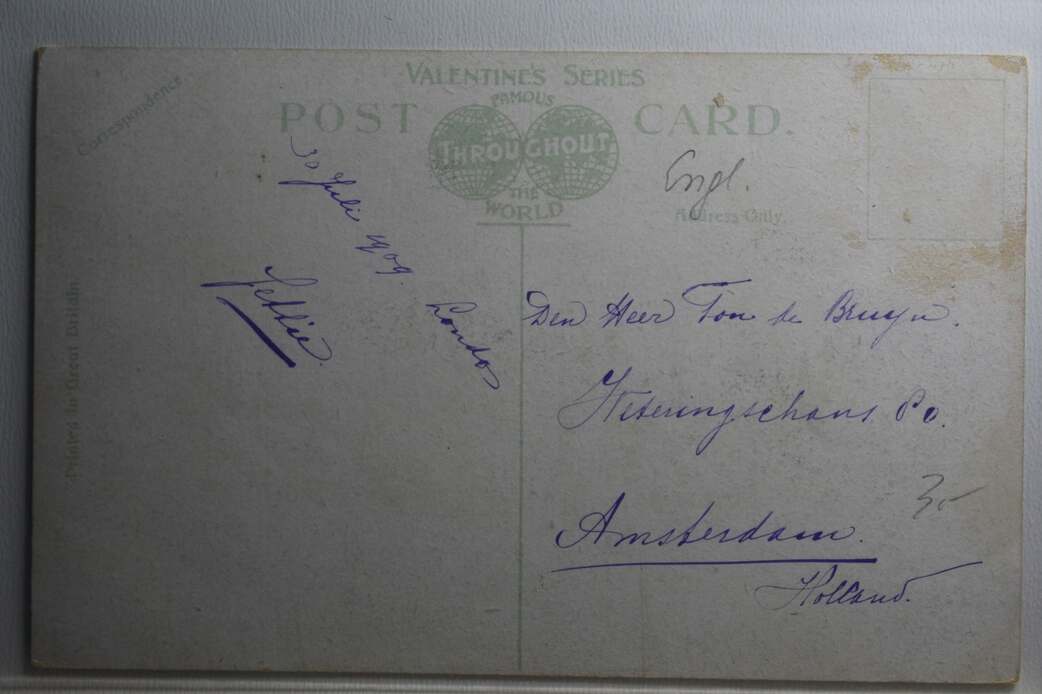 VALENTINE'S SERIES
FAMOUS
POST CARD.
THROUGHOUT
THE
WORLD
Correspondence
Address Only.
Printed in Great Britain
Engl.
30 Juli 1909. London
Den Heer Ton de Bruyn.
Weteringschans
Amsterdam.
Holland.